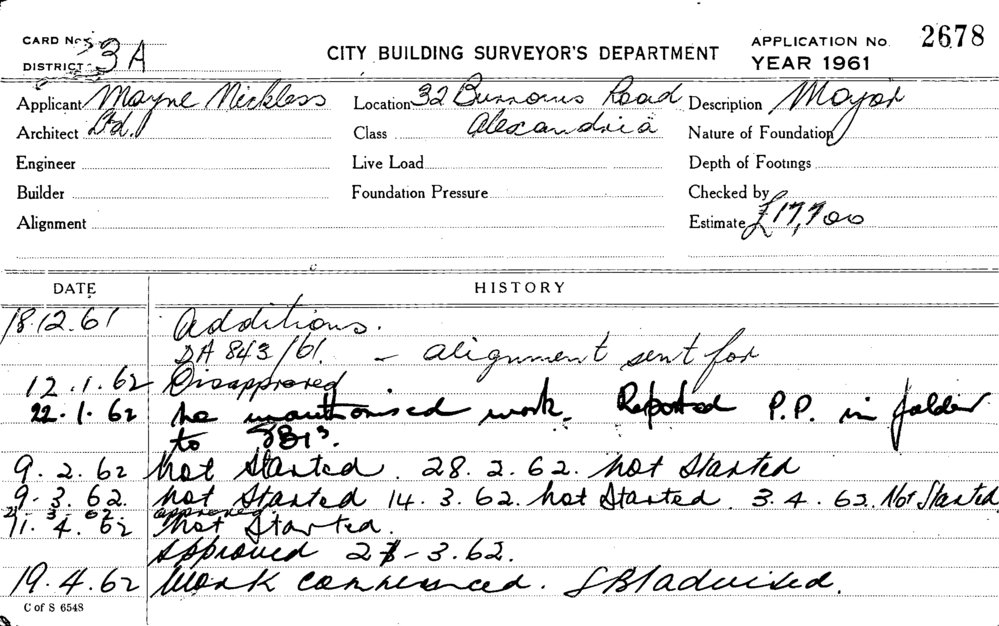 CARD No.
DISTRICT 3 A
CITY BUILDING SURVEYOR'S DEPARTMENT
APPLICATION No. 2678
YEAR 1961
Applicant Mayne Nickless Location 32 Burrows Road Description Major
Architect Ltd. Class Alexandria Nature of Foundation
Engineer Live Load Depth of Footings
Builder Foundation Pressure Checked by
Alignment Estimate £17,700
DATE HISTORY
18.12.61 Additions.
DA 843/61. - alignment sent for
12.1.62 Disapproved.
22.1.62 no unauthorised work. Reported P.P. in folder
to
9.2.62 Not Started. 28.2.62. Not Started
9.3.62. Not Started 14.3.62. Not Started. 3.4.62. Not Started.
approved
11.4.62 Not Started.
Approved 27-3.62.
19.4.62 Work commenced. SBI advised.
C of S 6548